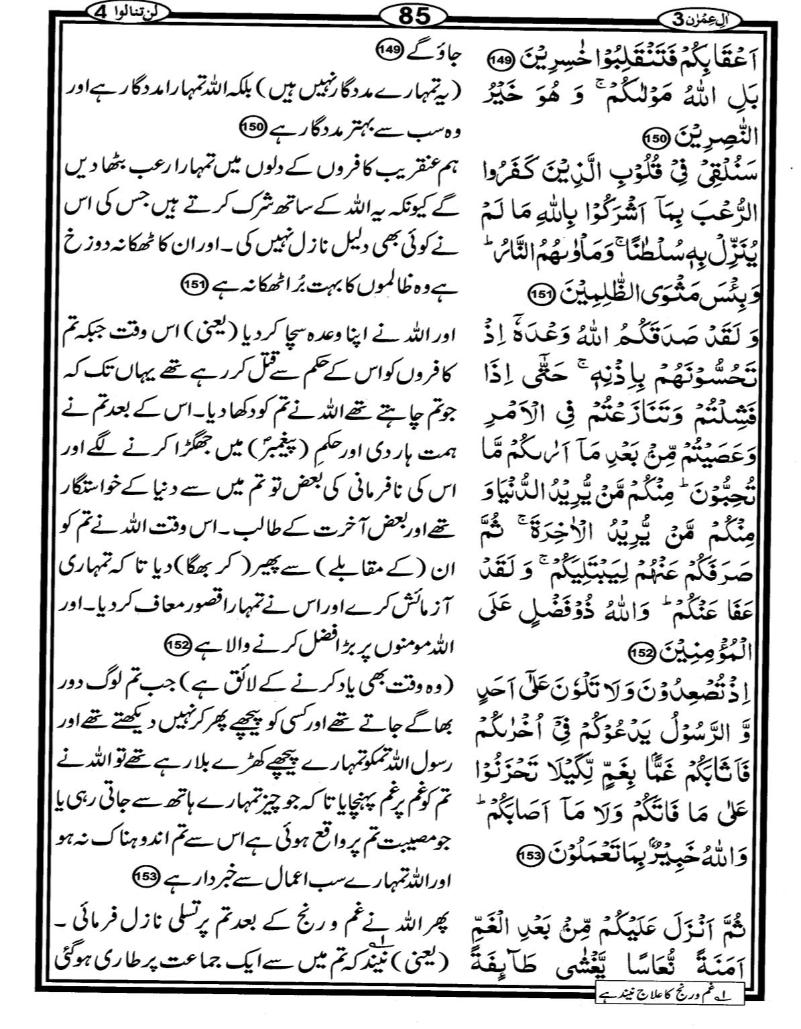 اٰلِ عِمْرٰن 3
85
لن تنالوا 4
اَعْقَابِكُمْ فَتَنْقَلِبُوْا خٰسِرِيْنَ 149
بَلِ اللّٰهُ مَوْلٰىكُمْ ۚ وَ هُوَ خَيْرُ
النّٰصِرِيْنَ 150
سَنُلْقِيْ فِيْ قُلُوْبِ الَّذِيْنَ كَفَرُوا
الرُّعْبَ بِمَاۤ اَشْرَكُوْا بِاللّٰهِ مَا لَمْ
يُنَزِّلْ بِهٖ سُلْطٰنًا ۚ وَمَاْوٰىهُمُ النَّارُ ؕ
وَبِئْسَ مَثْوَى الظّٰلِمِيْنَ 151
وَ لَقَدْ صَدَقَكُمُ اللّٰهُ وَعْدَهٗۤ اِذْ
تَحُسُّوْنَهُمْ بِاِذْنِهٖ ۚ حَتّٰۤى اِذَا
فَشِلْتُمْ وَتَنَازَعْتُمْ فِي الْاَمْرِ
وَعَصَيْتُمْ مِّنْۢ بَعْدِ مَاۤ اَرٰىكُمْ مَّا
تُحِبُّوْنَ ؕ مِنْكُمْ مَّنْ يُّرِيْدُ الدُّنْيَا وَ
مِنْكُمْ مَّنْ يُّرِيْدُ الْاٰخِرَةَ ۚ ثُمَّ
صَرَفَكُمْ عَنْهُمْ لِيَبْتَلِيَكُمْ ۚ وَ لَقَدْ
عَفَا عَنْكُمْ ؕ وَاللّٰهُ ذُوْ فَضْلٍ عَلَى
الْمُؤْمِنِيْنَ 152
اِذْ تُصْعِدُوْنَ وَلَا تَلْوٗنَ عَلٰۤى اَحَدٍ
وَّ الرَّسُوْلُ يَدْعُوْكُمْ فِيْۤ اُخْرٰىكُمْ
فَاَثَابَكُمْ غَمًّۢا بِغَمٍّ لِّكَيْلَا تَحْزَنُوْا
عَلٰى مَا فَاتَكُمْ وَلَا مَاۤ اَصَابَكُمْ ؕ
وَاللّٰهُ خَبِيْرٌۢ بِمَا تَعْمَلُوْنَ 153
ثُمَّ اَنْزَلَ عَلَيْكُمْ مِّنْۢ بَعْدِ الْغَمِّ
اَمَنَةً نُّعَاسًا يَّغْشٰى طَآىِٕفَةً
جاؤ گے 149
(یہ تمہارے مددگار نہیں ہیں) بلکہ اللہ تمہارا مددگار ہے اور
وہ سب سے بہتر مددگار ہے 150
ہم عنقریب کافروں کے دلوں میں تمہارا رعب بٹھا دیں
گے کیونکہ یہ اللہ کے ساتھ شرک کرتے ہیں جس کی اس
نے کوئی بھی دلیل نازل نہیں کی۔ اور ان کا ٹھکانہ دوزخ
ہے وہ ظالموں کا بہت بُرا ٹھکانہ ہے 151
اور اللہ نے اپنا وعدہ سچا کر دیا (یعنی) اس وقت جبکہ تم
کافروں کو اس کے حکم سے قتل کر رہے تھے یہاں تک کہ
جو تم چاہتے تھے اللہ نے تم کو دکھا دیا۔ اس کے بعد تم نے
ہمت ہار دی اور حکمِ (پیغمبرؐ) میں جھگڑا کرنے لگے اور
اس کی نافرمانی کی بعض تو تم میں سے دنیا کے خواستگار
تھے اور بعض آخرت کے طالب۔ اس وقت اللہ نے تم کو
ان (کے مقابلے) سے پھیر (کر بھگا) دیا تا کہ تمہاری
آزمائش کرے اور اس نے تمہارا قصور معاف کر دیا۔ اور
اللہ مومنوں پر بڑا فضل کرنے والا ہے 152
(وہ وقت بھی یاد کرنے کے لائق ہے) جب تم لوگ دور
بھاگے جاتے تھے اور کسی کو پیچھے پھر کر نہیں دیکھتے تھے اور
رسول اللہ تمکو تمہارے پیچھے کھڑے بلا رہے تھے تو اللہ نے
تم کو غم پر غم پہنچایا تا کہ جو چیز تمہارے ہاتھ سے جاتی رہی یا
جو مصیبت تم پر واقع ہوئی ہے اس سے تم اندوہناک نہ ہو
اور اللہ تمہارے سب اعمال سے خبردار ہے 153
پھر اللہ نے غم و رنج کے بعد تم پر تسلی نازل فرمائی۔
(یعنی) نیند ۱؎ کہ تم میں سے ایک جماعت پر طاری ہو گئی
۱؎ غم و رنج کا علاج نیند ہے